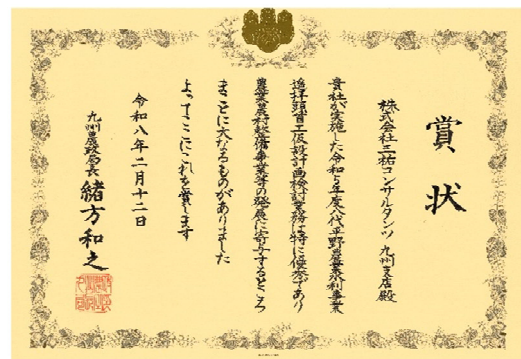 賞状
株式会社三祐コンサルタンツ 九州支店殿
貴社が実施した令和5年度八代平野農業水利事業
遥拝頭首工仮設計画検討業務は特に優秀であり
農業農村整備事業等の発展に寄与するところ
まことに大なるものがありました
よってここにこれを賞します
令和八年二月十二日
九州農政局長 緒方和之